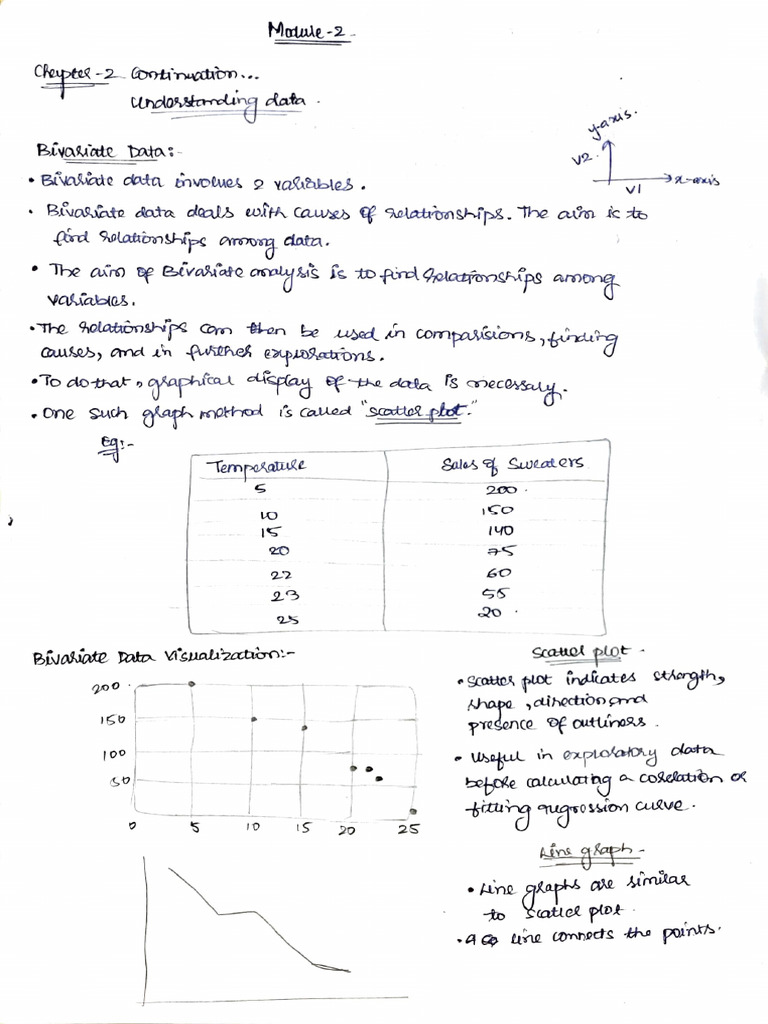 Module-2
Chepter-2 Continuation...
Understanding data.
y-axis.
V2
x-axis
V1
Bivariate Data:-
• Bivariate data involues 2 variables.
• Bivariate data deals with causes of relationships. The aim is to
find relationships among data.
• The aim of Bivariate analysis is to find relationships among
variables.
• The relationships can then be used in comparisions, finding
causes, and in further explorations.
• To do that, graphical display of the data is necessary.
• One such graph method is called "scatter plot."
Eg:-
Temperature Sales of Sweaters
5 200
10 150
15 140
20 75
22 60
23 55
25 20
Bivariate Data Visualization:-
200
150
100
50
0 5 10 15 20 25
Scatter plot -
• Scatter plot indicates strength,
shape, direction and
presence of outliners.
• Useful in exploratory data
before calculating a corelation or
fitting regression curve.
Line graph -
• Line graphs are similar
to scatter plot.
• a line connects the points.